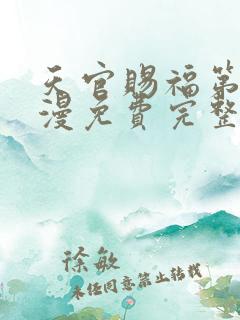 天官赐福第
漫免费完整
徐敏
未经同意禁止转载